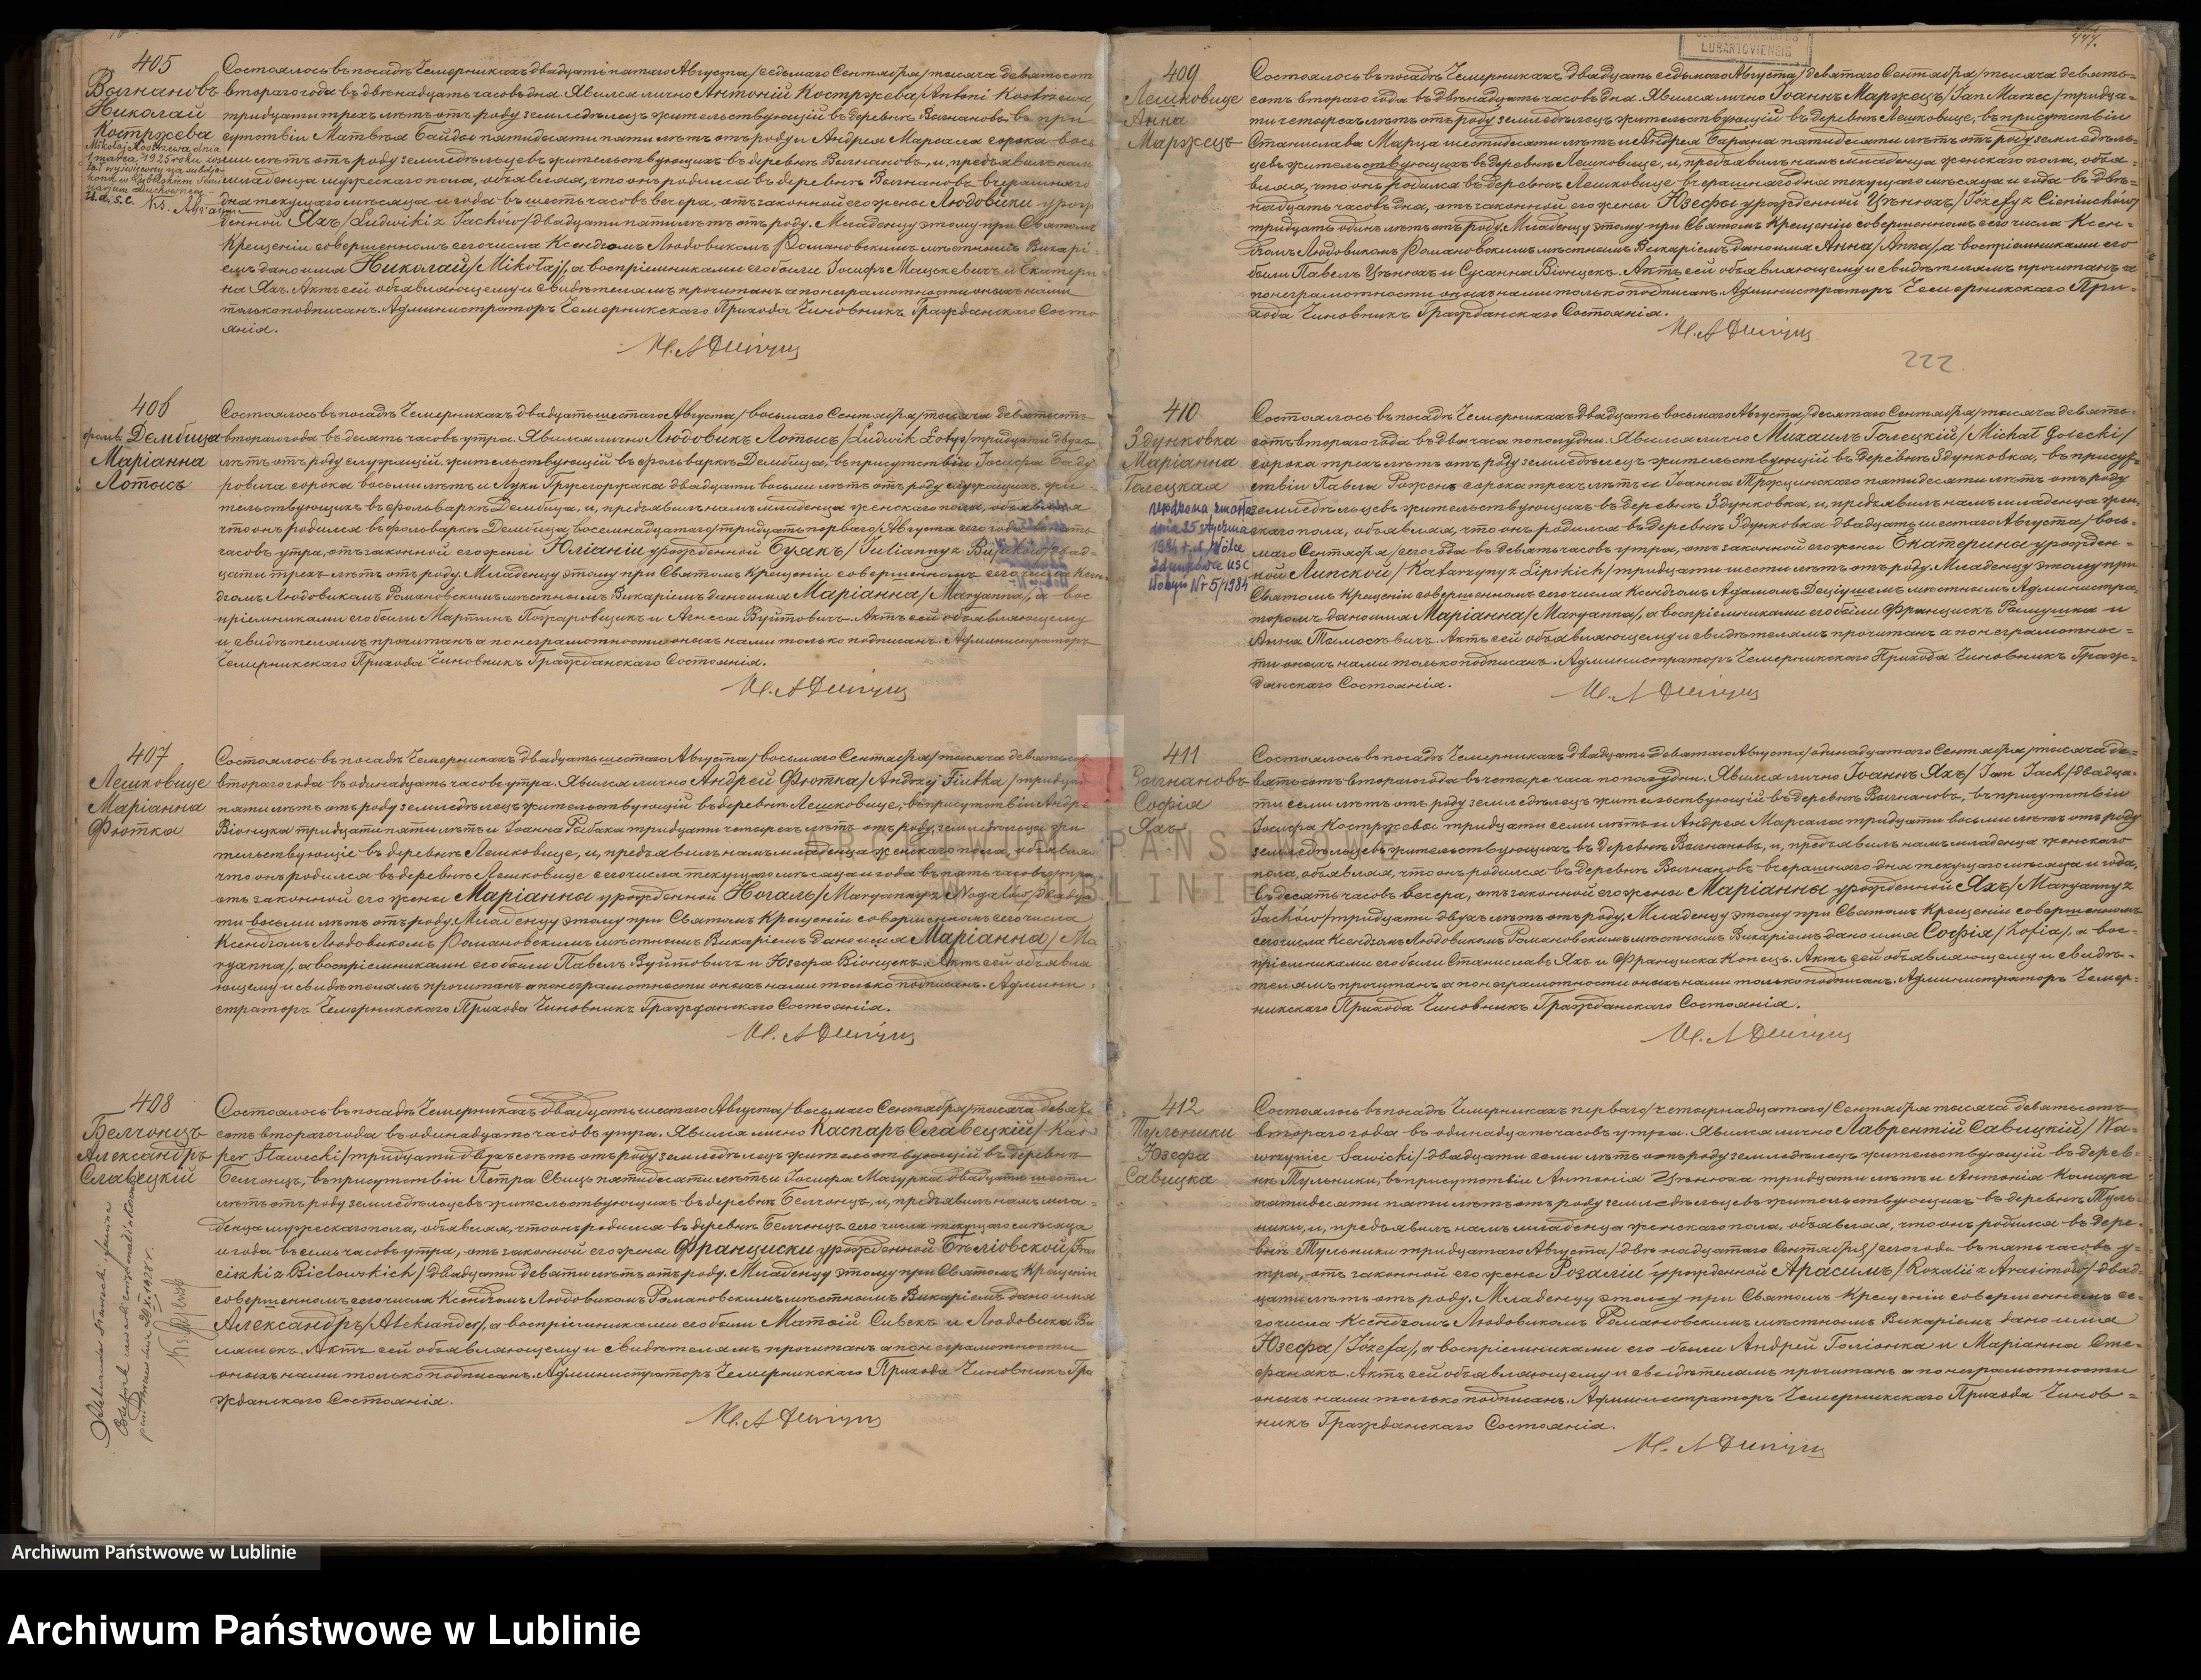 405
Волчановъ
Николай
Костржева
Mikołaj Kostrzewa dnia
1 marca 1925 roku zos-
Состоялось въ посадѣ Чемерникахъ двадцать пятаго Августа /седьмаго Сентября/ тысяча девятьсот
втораго года въ двѣнадцать часовъ дня. Явился лично Антоній Костржева /Antoni Kostrzewa/
тридцати трехъ лѣтъ отъ роду земледѣлецъ жительствующій въ деревнѣ въ при
сутствіи Матвѣя Байды пятидесяти пяти лѣтъ отъ роду и Андрея Марсала сорока вось
ми лѣтъ отъ роду земледѣльцевъ жительствующихъ въ деревнѣ и, предъявилъ нам
младенца мужескаго пола, объявляя, что онъ родился въ деревнѣ вчерашняго
дня текущаго мѣсяца и года въ шесть часовъ вечера, отъ законной его жены Людовики урож
денной Яхъ /Ludwiki z Jachów/ двадцати пяти лѣтъ отъ роду. Младенцу этому при Святомъ
Крещеніи совершенномъ сего числа Ксендзомъ Людовикомъ Романовскимъ мѣстнымъ Викарі-
емъ дано имя Николай /Mikołaj/, а воспріемниками его были Іосифъ Мацкевичъ и Екатери
на Яхъ. Актъ сей объявляющему и свидѣтелямъ прочитанъ а по неграмотности оныхъ нами
только подписанъ. Администраторъ Чемерникскаго Прихода Чиновникъ Гражданскаго Состо
янія.
406
фольв. Дембица
Маріанна
Лотысъ
Состоялось въ посадѣ Чемерникахъ двадцать шестаго Августа /восьмаго Сентября/ тысяча девятьсотъ
втораго года въ десять часовъ утра. Явился лично Людовикъ Лотысъ /Ludwik Łotys/ тридцати двухъ
лѣтъ отъ роду служащій жительствующій въ фольваркѣ Дембица, въ присутствіи Іосифа Баду
ровича сорока восьми лѣтъ и Луки Гржегоржака двадцати восьми лѣтъ отъ роду служащихъ жи
тельствующихъ въ фольваркѣ Дембица, и, предъявилъ намъ младенца женскаго пола, объявляя
что онъ родился въ фольваркѣ Дембица, восемнадцатаго /тридцать перваго/ Августа сего года
часовъ утра, отъ законной его жены Юліаніи урожденной Буякъ /Julianny z Bujaków/ двад-
цати трехъ лѣтъ отъ роду. Младенцу этому при Святомъ Крещеніи совершенномъ сего числа Ксен
дзомъ Людовикомъ Романовскимъ мѣстнымъ Викаріемъ дано имя Маріанна /Maryanna/, а вос
пріемниками его были Мартинъ Пожаровщикъ и Агнесса Вуйтовичъ. Актъ сей объявляющему
и свидѣтелямъ прочитанъ а по неграмотности оныхъ нами только подписанъ. Администраторъ
Чемерникскаго Прихода Чиновникъ Гражданскаго Состоянія.
407
Лешковице
Маріанна
Фютка
Состоялось въ посадѣ Чемерникахъ двадцать шестаго Августа /восьмаго Сентября/ тысяча девятьсот
втораго года въ одинадцать часовъ утра. Явился лично Андрей Фютка /Andrzej Fiutka/ тридцати
пяти лѣтъ отъ роду земледѣлецъ жительствующій въ деревнѣ Лешковице, въ присутствіи Андрея
Віонцка тридцати пяти лѣтъ и Іоанна Рыбака тридцати четырехъ лѣтъ отъ роду, земледѣльцы жи
тельствующіе въ деревнѣ Лешковице, и, предъявилъ намъ младенца женскаго пола, объявляя
что онъ родился въ деревнѣ Лешковице сего числа текущаго мѣсяца и года въ пять часовъ утра
отъ законной его жены Маріанны урожденной Ногалъ /Maryanny z Nogalów/ двадца
ти восьми лѣтъ отъ роду. Младенцу этому при Святомъ Крещеніи совершенномъ сего числа
Ксендзомъ Людовикомъ Романовскимъ мѣстнымъ Викаріемъ дано имя Маріанна /Ma
ryanna/, а воспріемниками его были Павелъ Вуйтовичъ и Юзефа Віонцекъ. Актъ сей объявля
ющему и свидѣтелямъ прочитанъ а по неграмотности оныхъ нами только подписанъ. Админи-
страторъ Чемерникскаго Прихода Чиновникъ Гражданскаго Состоянія.
408
Белчонцъ
Александръ
Славецкій
Состоялось въ посадѣ Чемерникахъ двадцать шестаго Августа /восьмаго Сентября/ тысяча девять
сотъ втораго года въ одинадцать часовъ утра. Явился лично Каспаръ Славецкій /Kas
per Sławecki/ тридцати двухъ лѣтъ отъ роду земледѣлецъ жительствующій въ деревнѣ
Белчонцъ, въ присутствіи Петра Свицъ пятидесяти лѣтъ и Іосифа Мазурка двадцати шести
лѣтъ отъ роду земледѣльцевъ жительствующихъ въ деревнѣ Белчонцъ, и, предъявилъ намъ мла-
денца мужескаго пола, объявляя, что онъ родился въ деревнѣ Белчонцъ сего числа текущаго мѣсяца
и года въ семь часовъ утра, отъ законной его жены Франциски урожденной Бѣліовской /Fran
ciszki z Bielowskich/ двадцати девяти лѣтъ отъ роду. Младенцу этому при Святомъ Крещеніи
совершенномъ сего числа Ксендзомъ Людовикомъ Романовскимъ мѣстнымъ Викаріемъ дано имя
Александръ /Aleksander/, а воспріемниками его были Матвій Сивекъ и Людовика Ва
ляшекъ. Актъ сей объявляющему и свидѣтелямъ прочитанъ а по неграмотности
оныхъ нами только подписанъ. Администраторъ Чемерникскаго Прихода Чиновникъ Гра
жданскаго Состоянія.
LUBARTOVIENSIS
409
Лешковице
Анна
Маржецъ
Состоялось въ посадѣ Чемерникахъ двадцать седьмаго Августа /девятаго Сентября/ тысяча девять-
сотъ втораго года въ двѣнадцать часовъ дня. Явился лично Іоаннъ Маржецъ /Jan Marzec/ тридца-
ти четырехъ лѣтъ отъ роду земледѣлецъ жительствующій въ деревнѣ Лешковице, въ присутствіи
Станислава Марца шестидесяти лѣтъ и Андрея Барана пятидесяти лѣтъ отъ роду земледѣль-
цевъ жительствующихъ въ деревнѣ Лешковице, и, предъявилъ намъ младенца женскаго пола, объя-
вляя, что онъ родился въ деревнѣ Лешковице вчерашняго дня текущаго мѣсяца и года въ двѣ-
надцать часовъ дня, отъ законной его жены Юзефы урожденной Цѣнюхъ /Józefy z Cieniuchów/
тридцать одинъ лѣтъ отъ роду. Младенцу этому при Святомъ Крещеніи совершенномъ сего числа Ксен-
дзомъ Людовикомъ Романовскимъ мѣстнымъ Викаріемъ дано имя Анна /Anna/, а воспріемниками его
были Павелъ Цѣнюхъ и Сусанна Віонцекъ. Актъ сей объявляющему и свидѣтелямъ прочитанъ а
по неграмотности оныхъ нами только подписанъ. Администраторъ Чемерникскаго При-
хода Чиновникъ Гражданскаго Состоянія.
222
410
Здунковка
Маріанна
Голецкая
zmarła
dnia 25 stycznia
1984 r. w Woli
Zdunkówka USC
Wohyń Nr 5/1984
Состоялось въ посадѣ Чемерникахъ двадцать восьмаго Августа /десятаго Сентября/ тысяча девять-
сотъ втораго года въ два часа пополудни. Явился лично Михаилъ Голецкій /Michał Gołecki/
сорока трехъ лѣтъ отъ роду земледѣлецъ жительствующій въ деревнѣ Здунковка, въ присут-
ствіи Павла Рожекъ сорока трехъ лѣтъ и Іоанна Тржцинскаго пятидесяти лѣтъ отъ роду
земледѣльцевъ жительствующихъ въ деревнѣ Здунковка, и, предъявилъ намъ младенца жен-
скаго пола, объявляя, что онъ родился въ деревнѣ Здунковка двадцать шестаго Августа /вось-
маго Сентября/ сего года въ девять часовъ утра, отъ законной его жены Екатерины урожден-
ной Липской /Katarzyny z Lipskich/ тридцати шести лѣтъ отъ роду. Младенцу этому при
Святомъ Крещеніи совершенномъ сего числа Ксендзомъ Адамомъ Деціушемъ мѣстнымъ Администра-
торомъ дано имя Маріанна /Maryanna/, а воспріемниками его были Францискъ Ромушка и
Анна Тымоскевичъ. Актъ сей объявляющему и свидѣтелямъ прочитанъ а по неграмотнос-
ти оныхъ нами только подписанъ. Администраторъ Чемерникскаго Прихода Чиновникъ Граж-
данскаго Состоянія.
411
Волчановъ
Софія
Яхъ
Состоялось въ посадѣ Чемерникахъ двадцать девятаго Августа /одинадцатаго Сентября/ тысяча де-
вятьсотъ втораго года въ четыре часа пополудни. Явился лично Іоаннъ Яхъ /Jan Jach/ двадца-
ти семи лѣтъ отъ роду земледѣлецъ жительствующій въ деревнѣ въ присутствіи
Іосифа Костржевы тридцати семи лѣтъ и Андрея Марсала тридцати восьми лѣтъ отъ роду
земледѣльцевъ жительствующихъ въ деревнѣ и, предъявилъ намъ младенца женскаго
пола, объявляя, что онъ родился въ деревнѣ вчерашняго дня текущаго мѣсяца и года,
въ десять часовъ вечера, отъ законной его жены Маріанны урожденной Яхъ /Maryanny z
Jachów/ тридцати двухъ лѣтъ отъ роду. Младенцу этому при Святомъ Крещеніи совершенномъ
сего числа Ксендзомъ Людовикомъ Романовскимъ мѣстнымъ Викаріемъ дано имя Софія /Zofia/, а вос-
пріемниками его были Станиславъ Яхъ и Франциска Конецъ. Актъ сей объявляющему и свидѣ-
телямъ прочитанъ а по неграмотности оныхъ нами только подписанъ. Администраторъ Чемер-
никскаго Прихода Чиновникъ Гражданскаго Состоянія.
412
Тульники
Юзефа
Савицка
Состоялось въ посадѣ Чемерникахъ перваго /четырнадцатаго/ Сентября тысяча девятьсотъ
втораго года въ одинадцать часовъ утра. Явился лично Лаврентій Савицкій /Wa-
wrzyniec Sawicki/ двадцати семи лѣтъ отъ роду земледѣлецъ жительствующій въ дерев-
нѣ Тульники, въ присутствіи Антонія Цѣнюха тридцати лѣтъ и Антонія Комара
пятидесяти пяти лѣтъ отъ роду земледѣльцевъ жительствующихъ въ деревнѣ Туль-
ники, и, предъявилъ намъ младенца женскаго пола, объявляя, что онъ родился въ дере-
внѣ Тульники тридцатаго Августа /двѣнадцатаго Сентября/ сего года въ пять часовъ у-
тра, отъ законной его жены Розаліи урожденной Арасимъ /Rozalii z Arasimów/ двад-
цати лѣтъ отъ роду. Младенцу этому при Святомъ Крещеніи совершенномъ се-
го числа Ксендзомъ Людовикомъ Романовскимъ мѣстнымъ Викаріемъ дано имя
Юзефа /Józefa/, а воспріемниками его были Андрей Голіонка и Маріанна Сте-
фанякъ. Актъ сей объявляющему и свидѣтелямъ прочитанъ а по неграмотности
оныхъ нами только подписанъ. Администраторъ Чемерникскаго Прихода Чинов-
никъ Гражданскаго Состоянія.
Archiwum Państwowe w Lublinie
Archiwum Państwowe w Lublinie